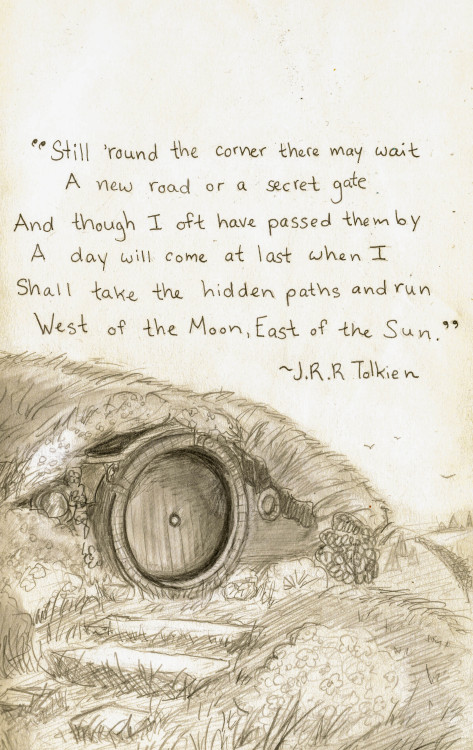 “Still 'round the corner there may wait
A new road or a secret gate.
And though I oft have passed them by
A day will come at last when I
Shall take the hidden paths and run
West of the Moon, East of the Sun.”
~J.R.R Tolkien